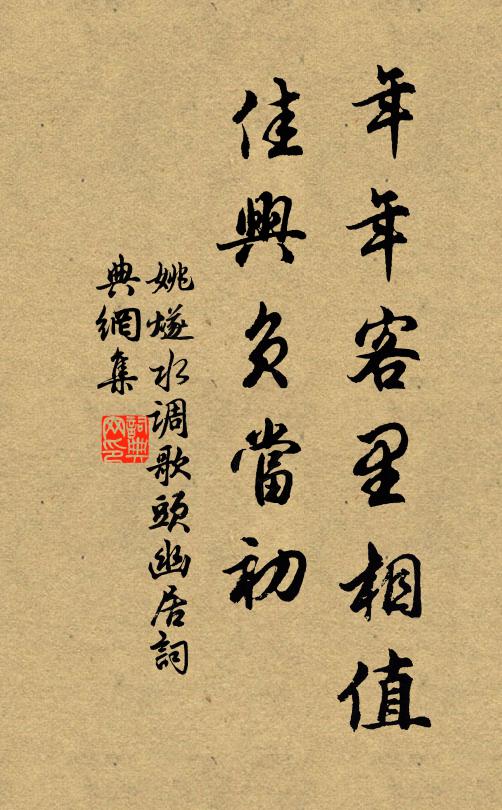 年年客里相值
佳興負當初
姚燧水调歌頭幽居詞
典網集
詞典
网印